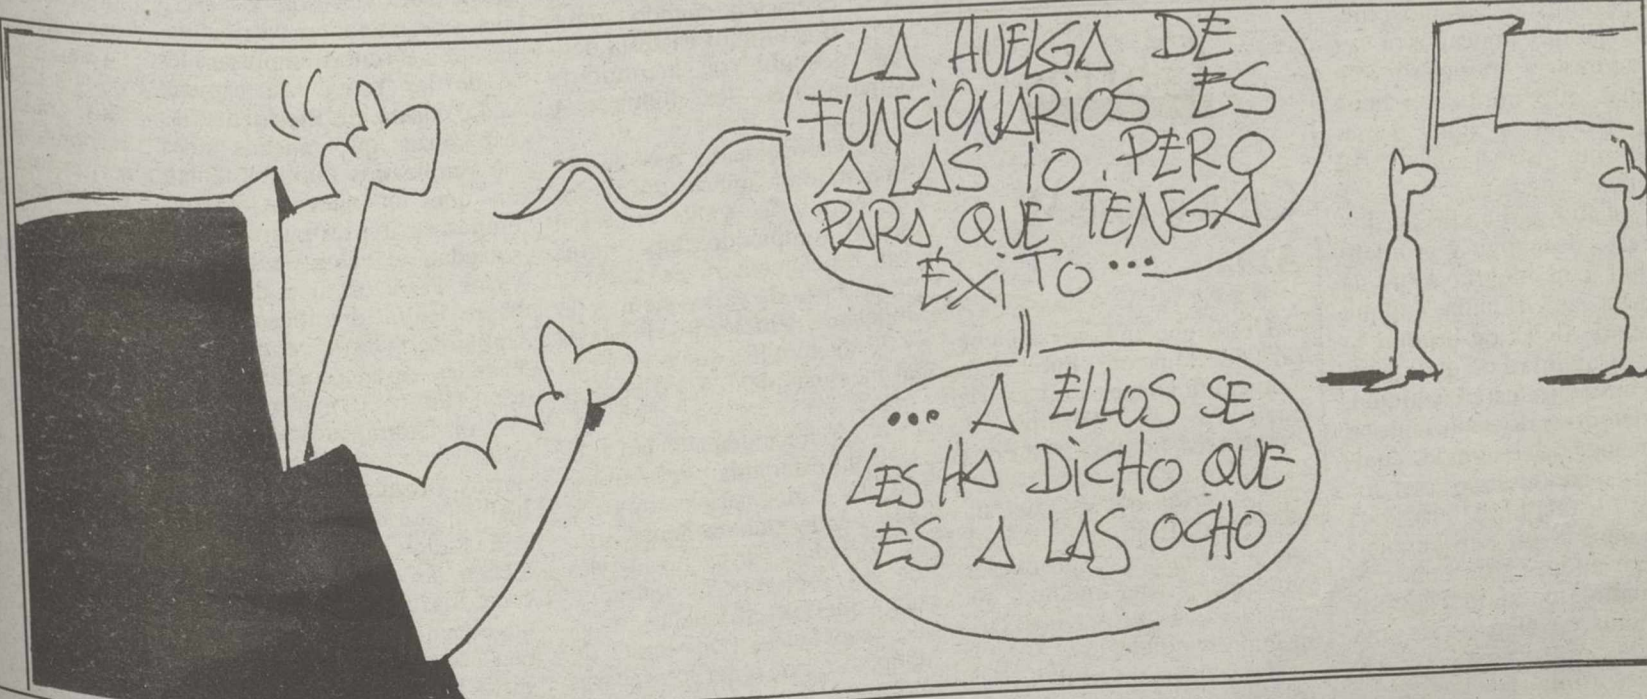 LA HUELGA DE
FUNCIONARIOS ES
A LAS 10. PERO
PARA QUE TENGA
ÉXITO...
... A ELLOS SE
LES HA DICHO QUE
ES A LAS OCHO